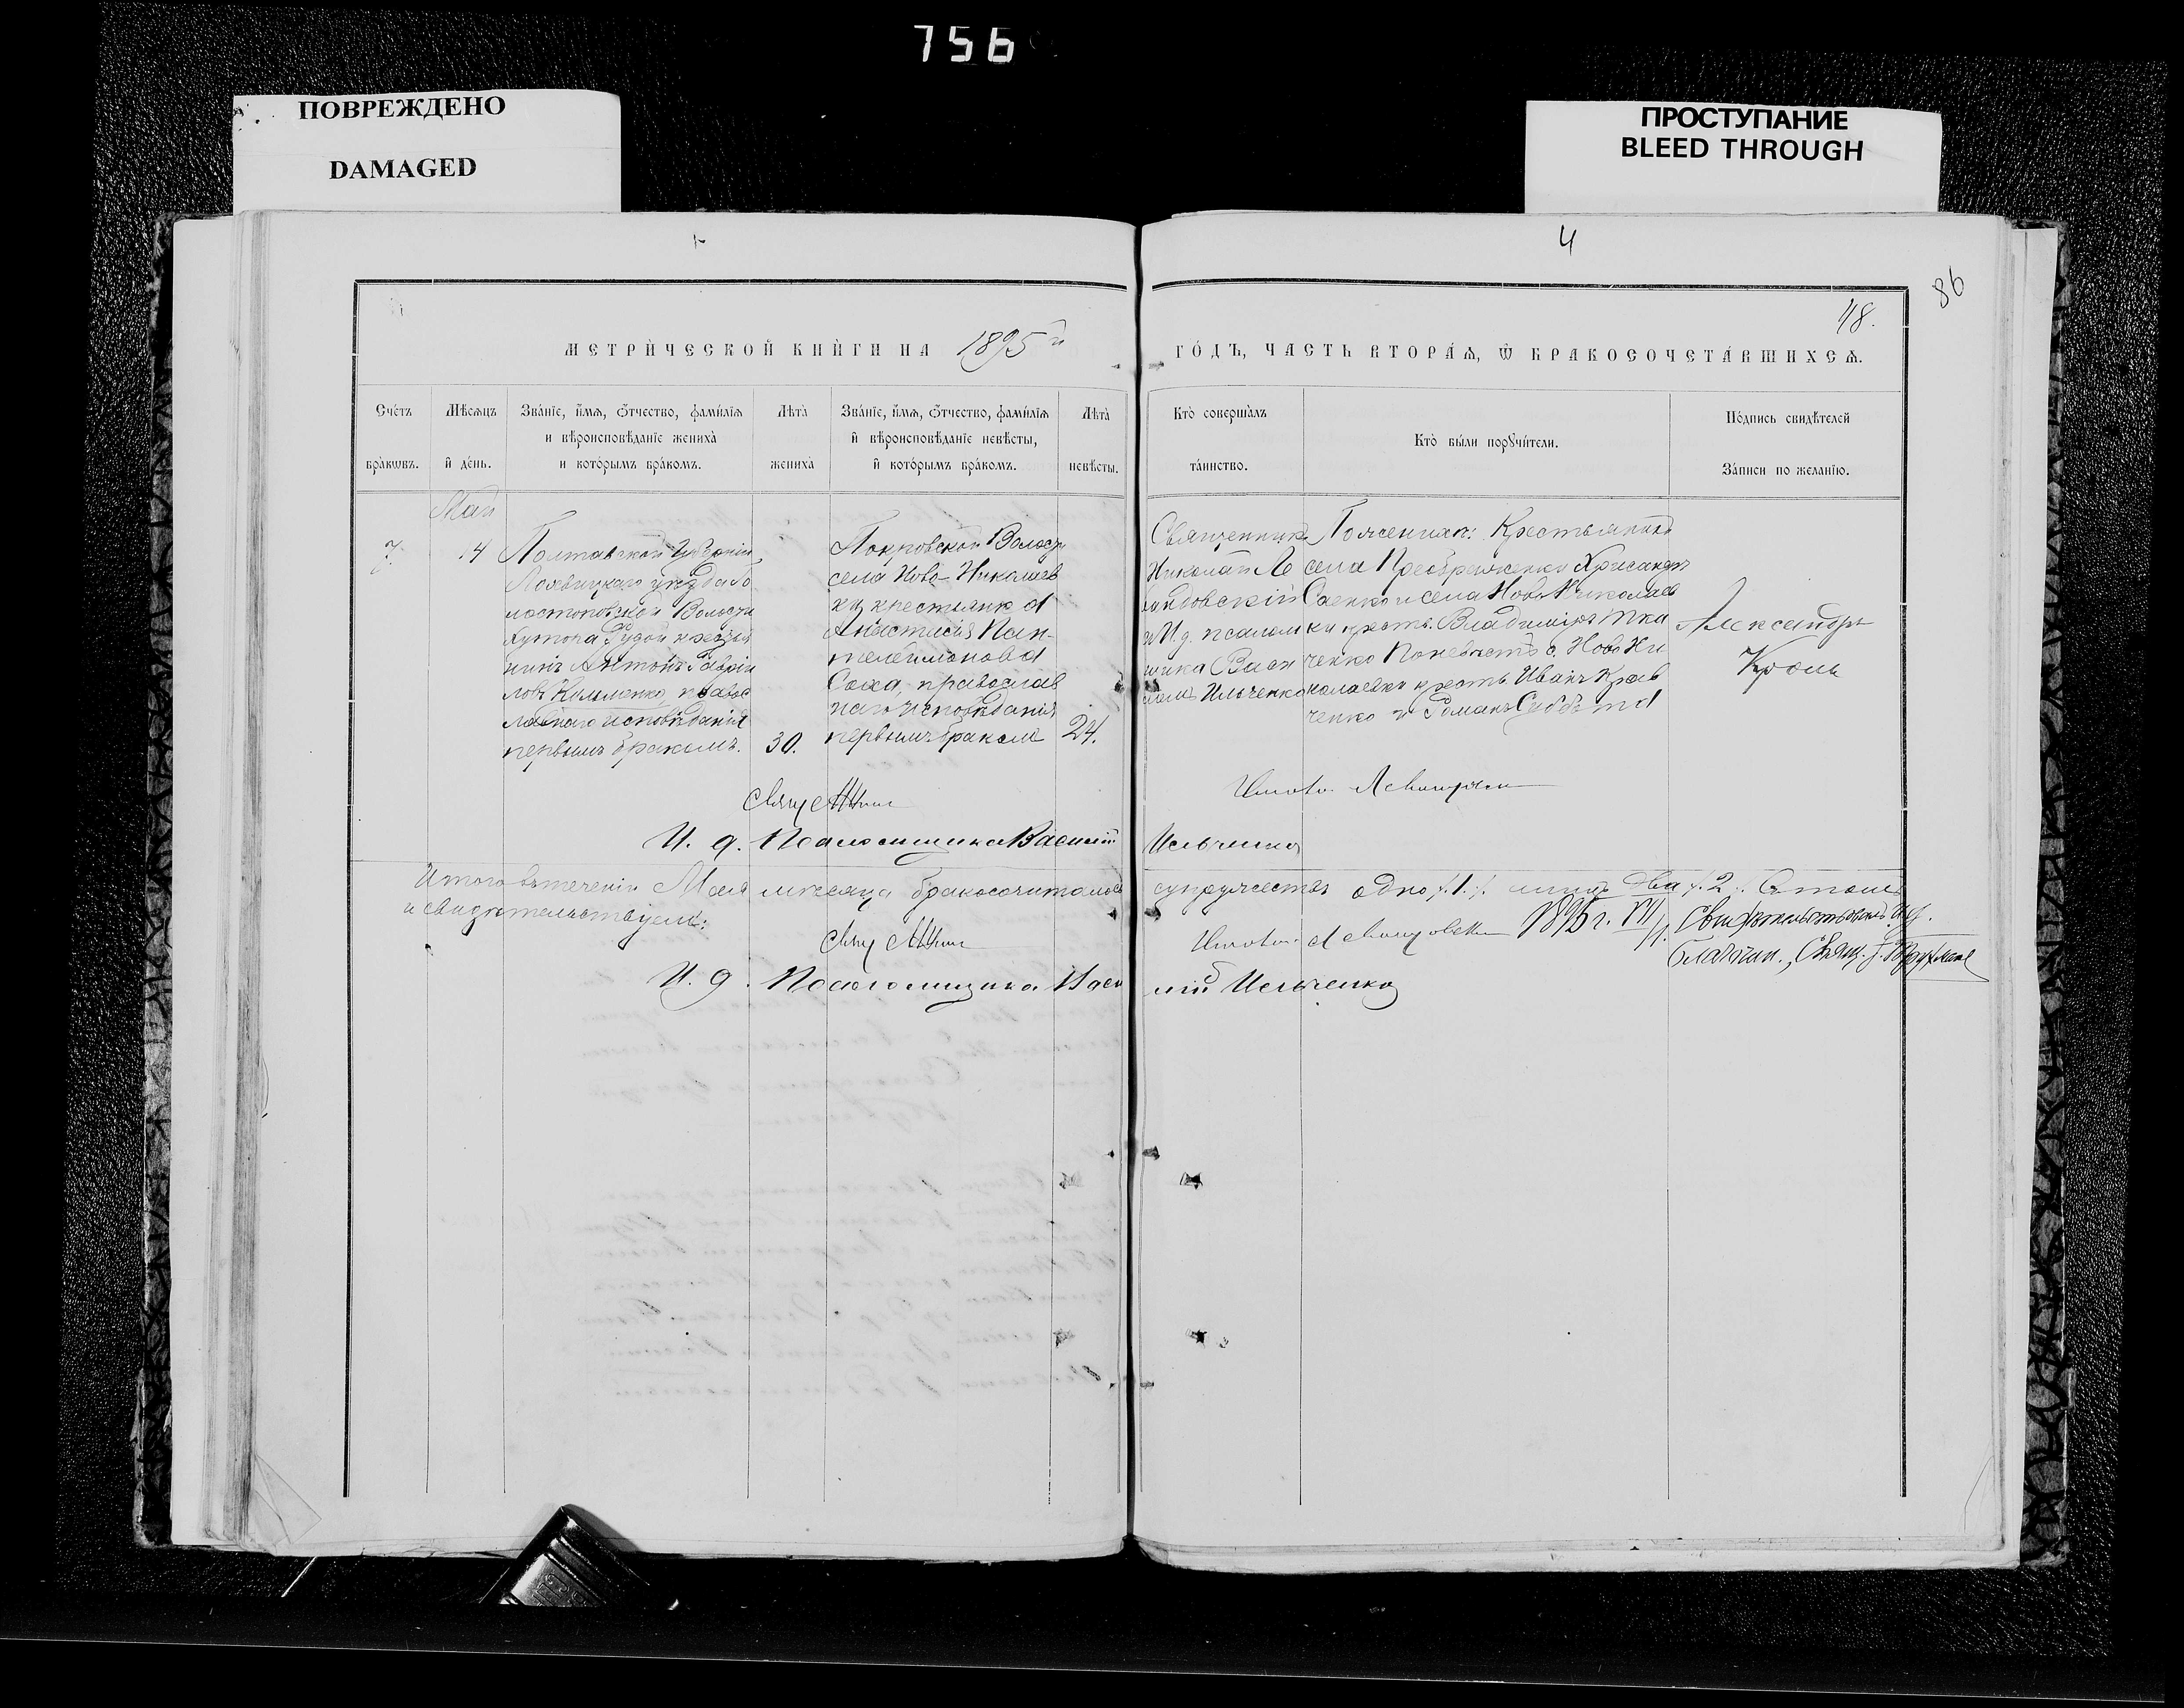 756
ПОВРЕЖДЕНО
DAMAGED
ПРОСТУПАНИЕ
BLEED THROUGH
4
86
48.
МЕТРИЧЕСКОЙ КНИГИ НА 1895й
ГОДЪ, ЧАСТЬ ВТОРАѦ, Ѿ БРАКОСОЧЕТАВШИХСѦ.
Счетъ браковъ.
Мѣсѧцъ и день.
Званіе, имѧ, ѿтчество, фамиліѧ и вѣроисповѣданіе жениха и которымъ бракомъ.
Лѣта жениха
Званіе, имѧ, ѿтчество, фамиліѧ и вѣроисповѣданіе невѣсты, и которымъ бракомъ.
Лѣта невѣсты.
Кто совершалъ таинство.
Кто были порꙋчители.
Подпись свидѣтелей записи по желанію.
Май
7.
14
Полтавской Губерніи
уѣзда
Волости
хутора Рудой
нинъ Антонъ Гаврии
ловъ Клименко, правос
лавнаго исповѣданія
первымъ бракомъ.
30.
Покровской Волости
села Ново-Николаев
ки крестьянка
Анастасія Пан-
телеимонова
Соха, православ
наго исповѣданія
первымъ бракомъ
24.
Священникъ
Николай Ле
вандовскій
и И. д. псалом
щика Васи
лій Ильченко
По женихѣ: Крестьянинъ
села Преображенки Хрисанфъ
Саенко и села Ново Николаев
ки крест. Владиміръ Тка
ченко По невѣстѣ с. Ново Ни
колаевки крест. Иванъ Крав
ченко и Романъ
Александръ
Кроль
И. д. Псаломщика Василій Ильченко
Итого въ теченіи Мая мѣсяца бракосочиталось супружествъ одно /.1./. лицъ два /.2./. Въ томъ
и свидѣтельствуемъ:
1895 г. VII/1. Свидѣтельствовалъ И.д.
Благочин., Свящ. І.
И. д. Псаломщика Василій Ильченко